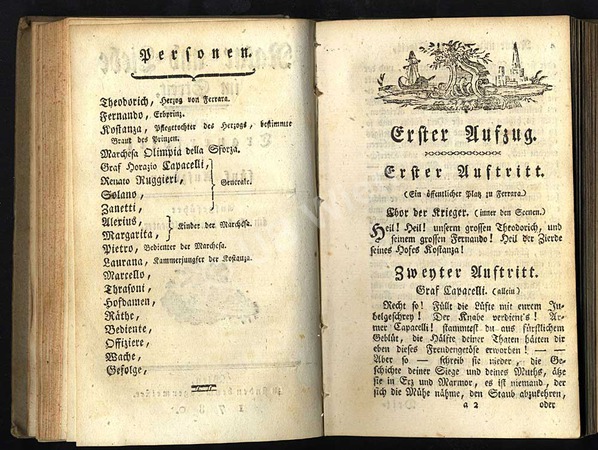 Personen.
Theodorich, Herzog von Ferrara.
Fernando, Erbprinz.
Kostanza, Pflegetochter des Herzogs, bestimmte
Braut des Prinzen.
Marchesa Olimpia della Sforza.
Graf Horazio Capacelli,
Renato Ruggieri,
Generale.
Solano,
Zanetti,
Alerius,
Kinder der Marchesa.
Margarita,
Pietro, Bedienter der Marchesa.
Laurana, Kammerjungfer der Kostanza.
Marcello,
Thrasoni,
Hofdamen,
Räthe,
Bediente,
Offiziere,
Wache,
Gefolge,
Erster Aufzug.
Erster Auftritt.
(Ein öffentlicher Platz zu Ferrara.)
Chor der Krieger. (inner den Scenen.)
Heil! Heil! unserm grossen Throdorich, und
seinem grossen Fernando! Heil der Zierde
seines Hofes Kostanza!
Zweyter Auftritt.
Graf Capacelli. (allein)
Recht so! Füllt die Lüfte mit eurem Ju-
belgeschrey! Der Knabe verdient's! Ar-
mer Capacelli! stammtest du aus fürstlichem
Geblüt, die Hälfte deiner Thaten hätten dir
eben dieses Freudengetöse erworben! — —
Aber so — schreib sie nieder, die Ge-
schichte deiner Siege und deines Muths, ätze
sie in Erz und Marmor, es ist niemand, der
sich die Mühe nähme, den Staub abzukehren,
a 2 oder